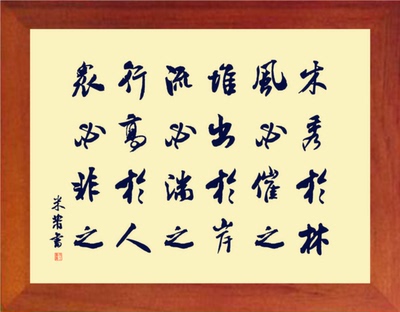 木秀於林
風必催之
堆出於岸
流必湍之
行高於人
衆必非之
米芾書